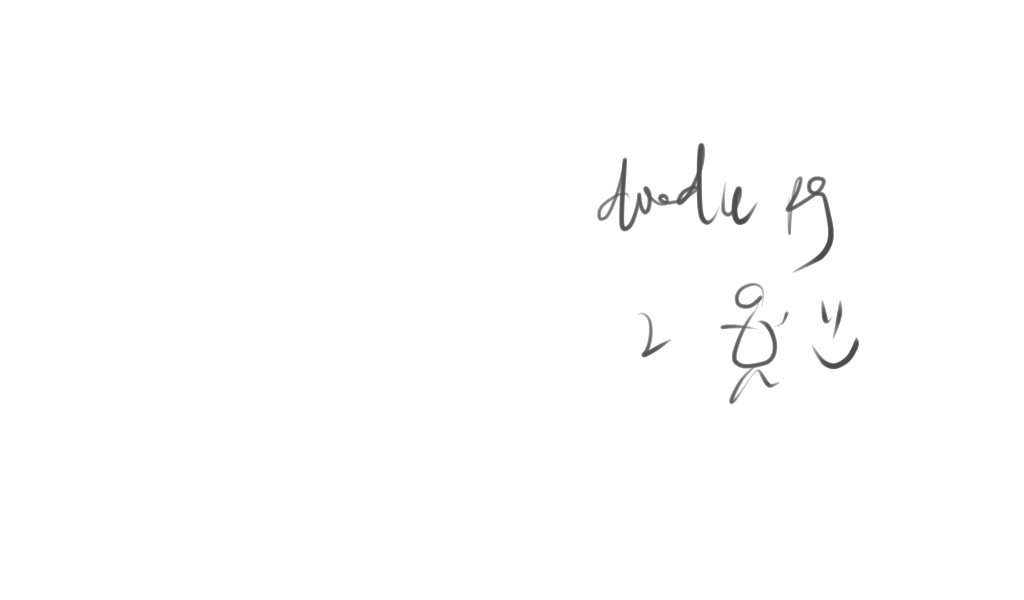 doodle pg
2